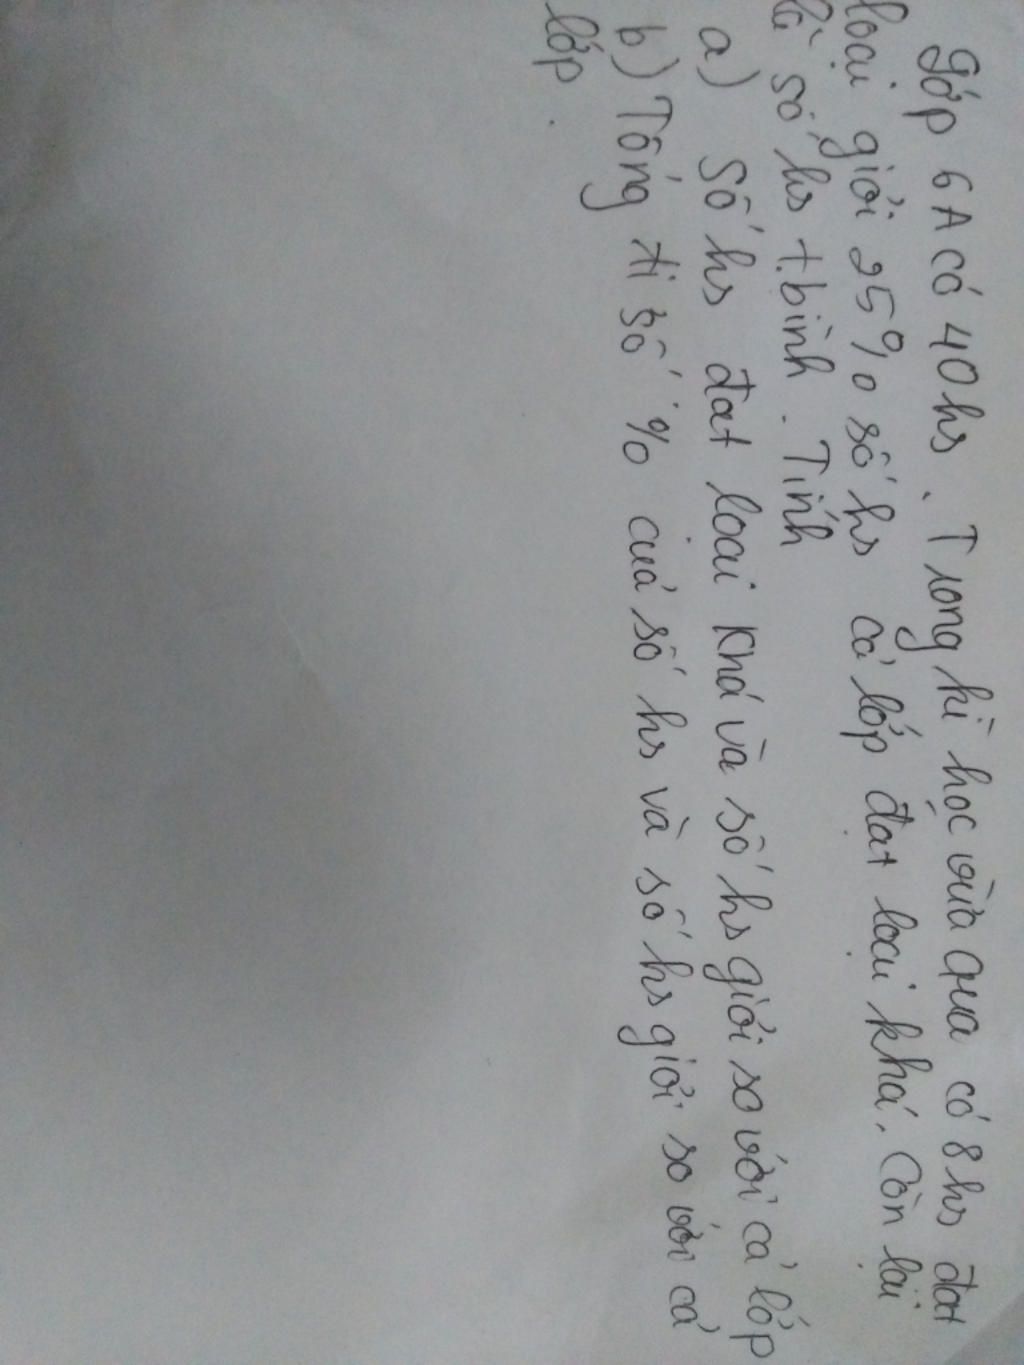 Lớp 6A có 40 hs. Trong kì học vừa qua có 8 hs đạt
loại giỏi 25% số hs cả lớp đạt loại khá. Còn lại
là số hs t.bình. Tính
a) Số hs đạt loại khá và số hs giỏi so với cả lớp
b) Tổng tỉ số % của số hs và số hs giỏi so với cả
lớp.